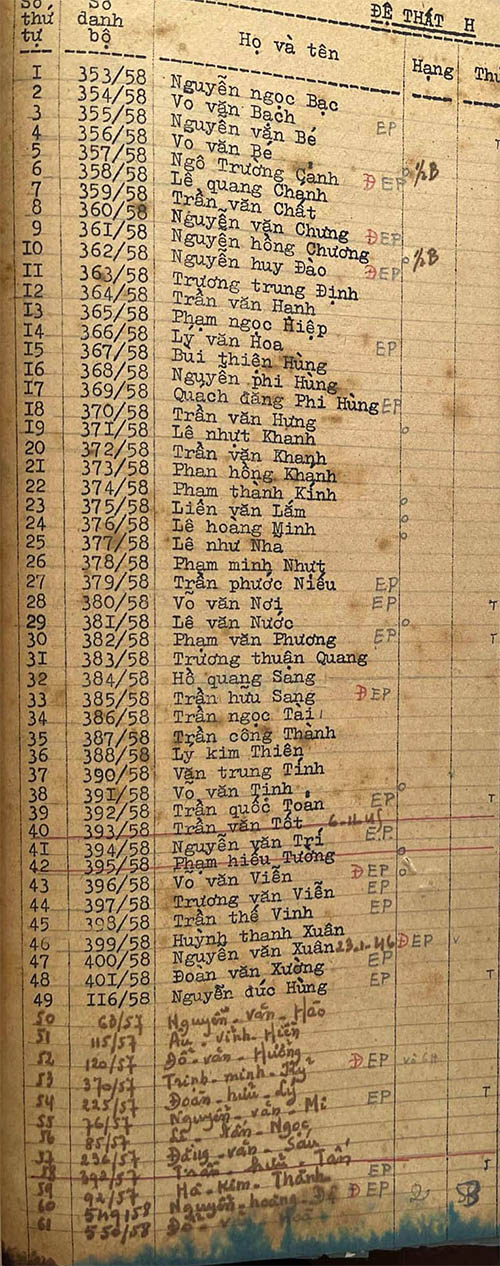 ĐỆ THẤT H
Số thứ tự Số danh bộ Họ và tên Hạng Thứ
1 353/58 Nguyễn ngọc Bạc
2 354/58 Vo văn Bạch
3 355/58 Nguyễn văn Bé EP T
4 356/58 Vo văn Bé
5 357/58 Ngô Trương Cảnh Đ EP ½B
6 358/58 Lê quang Chánh
7 359/58 Trần văn Chất
8 360/58 Nguyễn văn Chưng Đ EP
9 361/58 Nguyễn hồng Chương
10 362/58 Nguyễn huy Đào Đ EP ½B
11 363/58 Trương trung Định
12 364/58 Trần văn Hạnh
13 365/58 Phạm ngọc Hiệp
14 366/58 Lý văn Hoa EP
15 367/58 Bùi thiện Hùng
16 368/58 Nguyễn phi Hùng
17 369/58 Quach đăng Phi Hùng EP
18 370/58 Trần văn Hưng
19 371/58 Lê nhựt Khanh
20 372/58 Trần văn Khanh
21 373/58 Phan hồng Khánh
22 374/58 Phạm thành Kính
23 375/58 Liên văn Lắm
24 376/58 Lê hoàng Minh
25 377/58 Lê như Nhã
26 378/58 Phạm minh Nhựt
27 379/58 Trần phước Niêu EP
28 380/58 Võ văn Nơi EP T
29 381/58 Lê văn Nước
30 382/58 Phạm văn Phương EP T
31 383/58 Trương thuận Quang
32 384/58 Hồ quang Sang
33 385/58 Trần hữu Sang Đ EP
34 386/58 Trần ngọc Tài
35 387/58 Trần công Thành
36 388/58 Lý kim Thiên
37 390/58 Văn trung Tính
38 391/58 Võ văn Tịnh
39 392/58 Trần quốc Toản EP T
40 393/58 Trần văn Tốt
41 394/58 Nguyễn văn Trí EP
42 395/58 Phạm hiếu Tường
43 396/58 Võ văn Viễn Đ EP
44 397/58 Trương văn Viễn EP
45 398/58 Trần thế Vinh EP
46 399/58 Huỳnh thanh Xuân
47 400/58 Nguyễn văn Xuân 23.1.46 Đ EP
48 401/58 Đoàn văn Xường EP T
49 116/58 Nguyễn đức Hùng
50 68/57 Nguyễn - văn - Hảo
51 115/57 Âu - vĩnh - Hiền
52 120/57 Đỗ - văn - Hường Đ EP
53 370/57 Trịnh - minh
54 225/57 Đoàn - hữu - Lý EP T
55 76/57 Nguyễn - văn - Mi
56 85/57 Lê - tấn - Ngọc
57 236/57 Đặng - văn - Sáu
58 392/57 Trần - hữu - Tấn EP 5
59 92/57 Hà - Kim - Thành
60 549/58 Nguyễn - hoàng Đ EP 2
61 550/58 Đỗ - văn